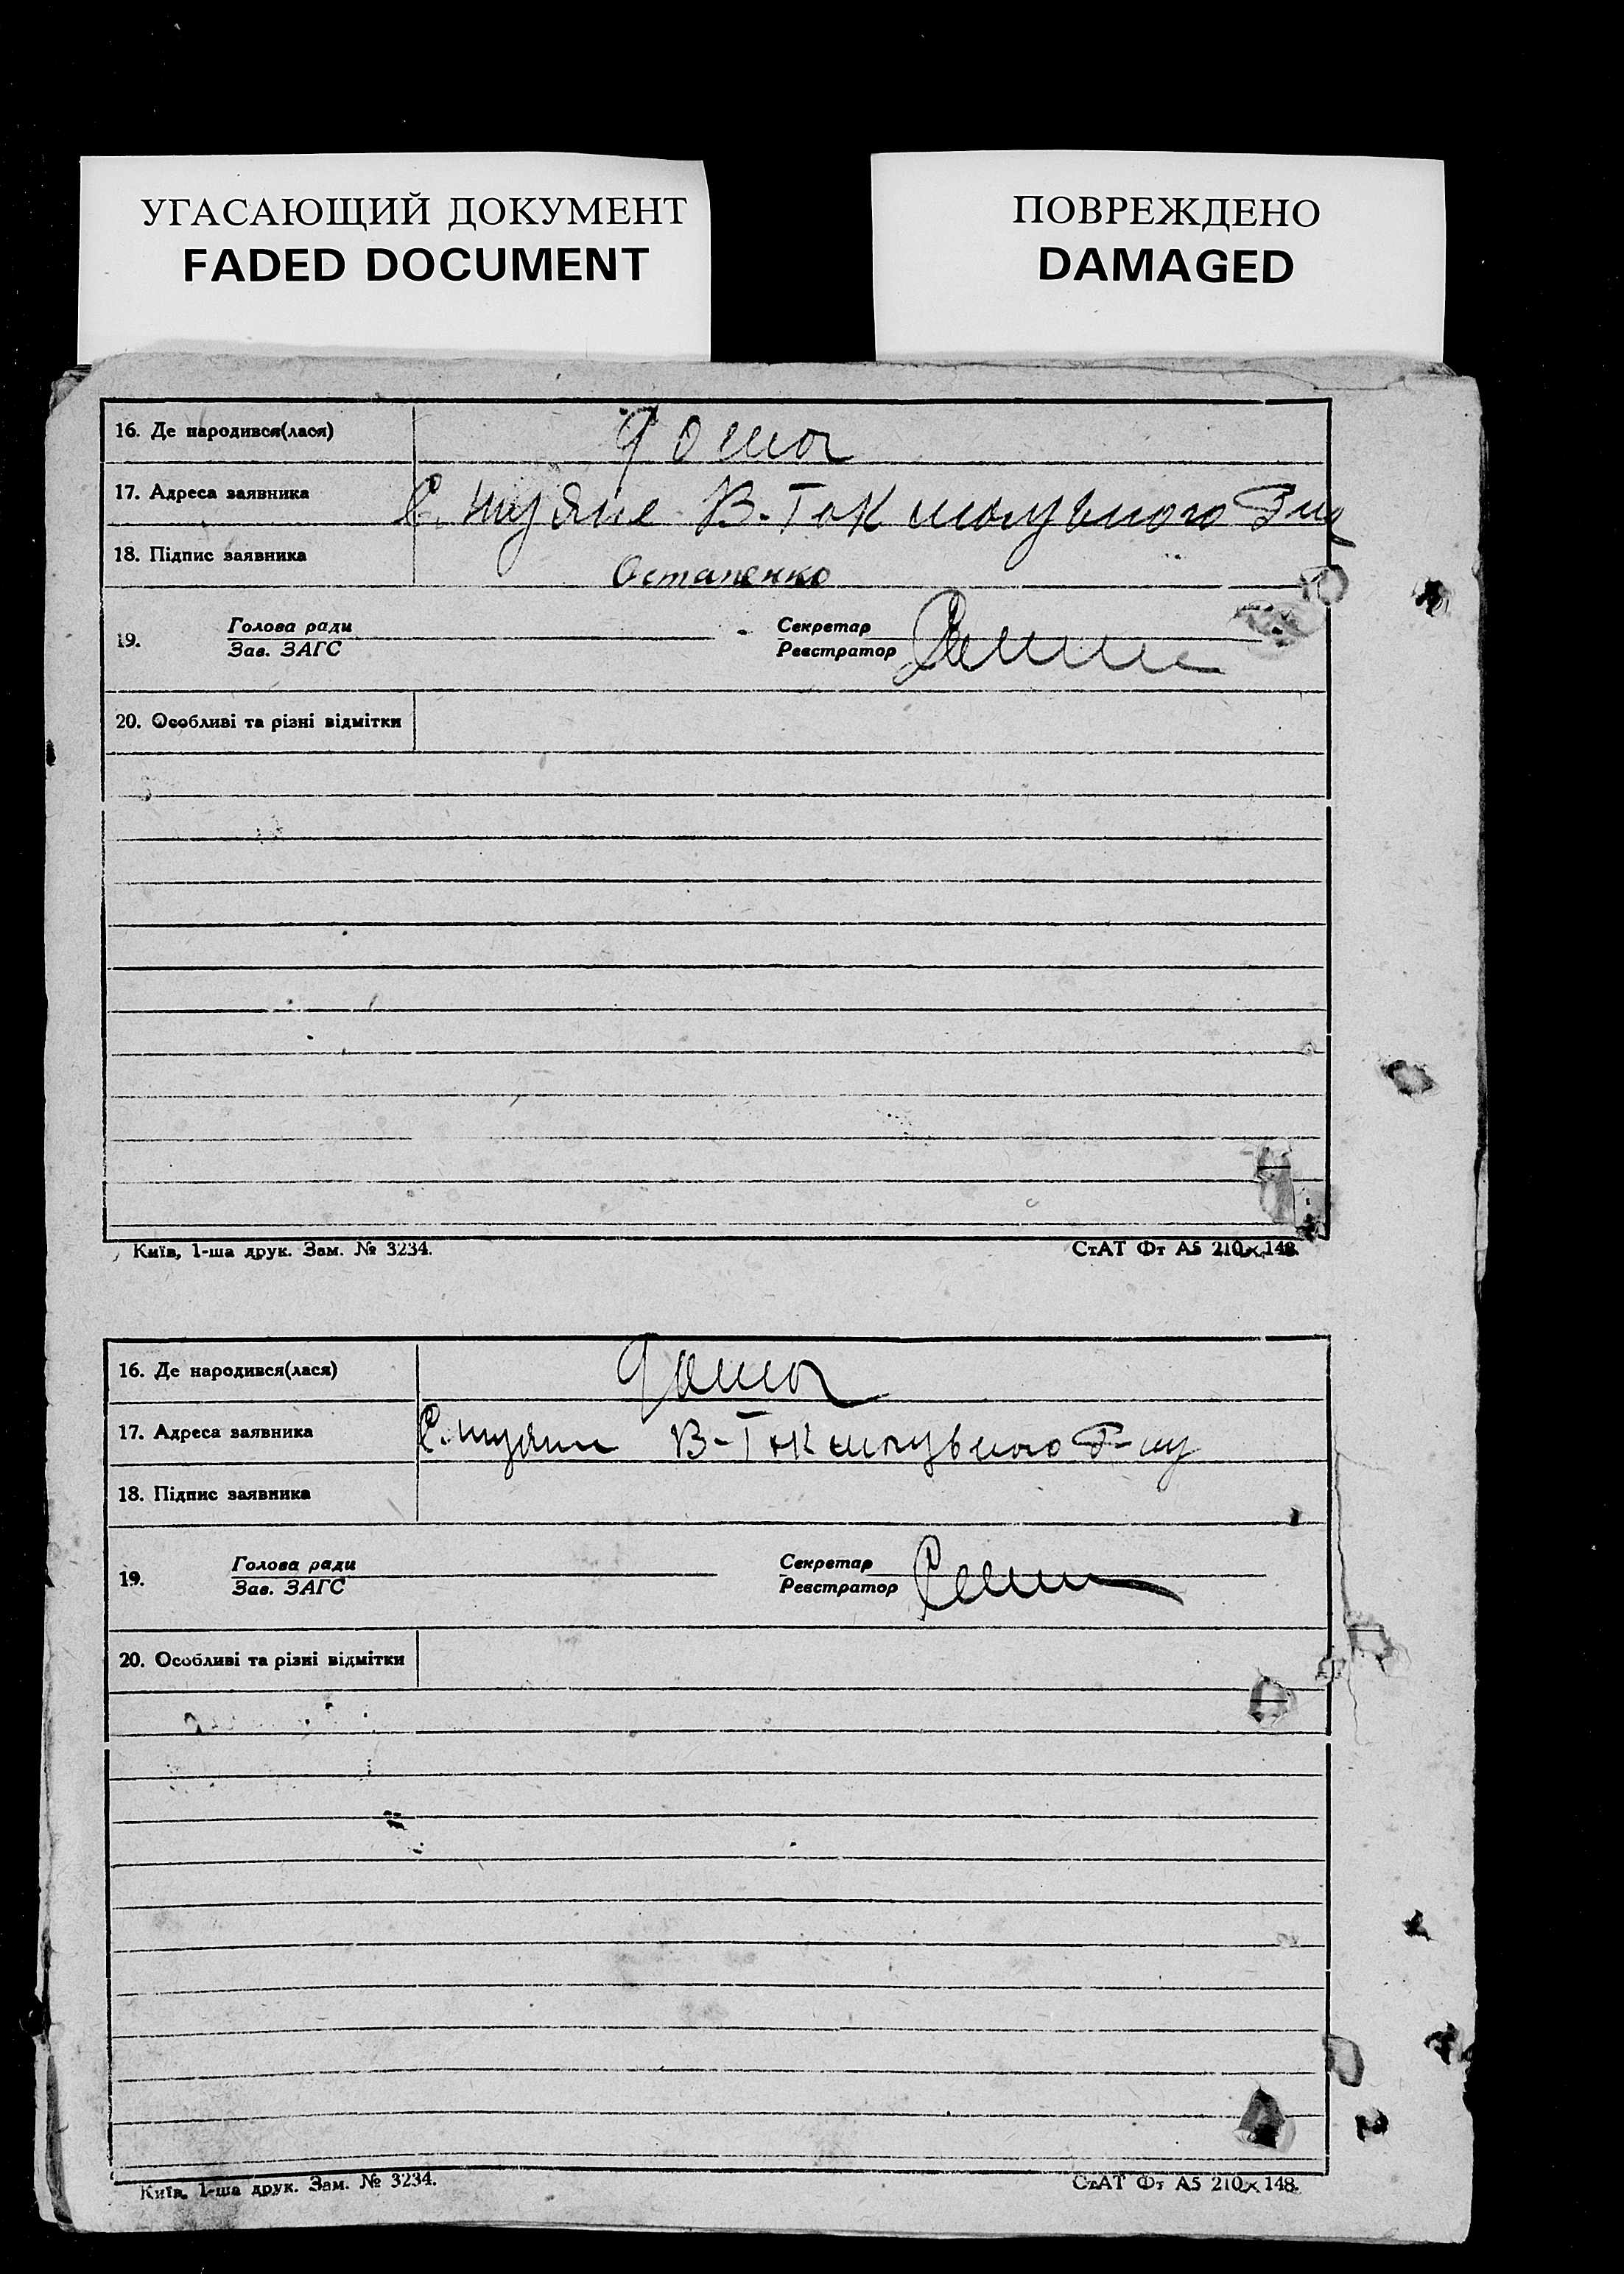 УГАСАЮЩИЙ ДОКУМЕНТ
FADED DOCUMENT
ПОВРЕЖДЕНО
DAMAGED
16. Де народився(лася) дома
17. Адреса заявника С. В-Токмацького Р-ну
18. Підпис заявника Остапенко
19. Голова ради
Зав. ЗАГС
Секретар
Реєстратор
20. Особливі та різні відмітки
Київ, 1-ша друк. Зам. № 3234.
СтАТ Фт А5 210×148.
16. Де народився(лася) дома
17. Адреса заявника С. В-Токмацького Р-ну
18. Підпис заявника
19. Голова ради
Зав. ЗАГС
Секретар
Реєстратор
20. Особливі та різні відмітки
Київ, 1-ша друк. Зам. № 3234.
СтАТ Фт А5 210×148.